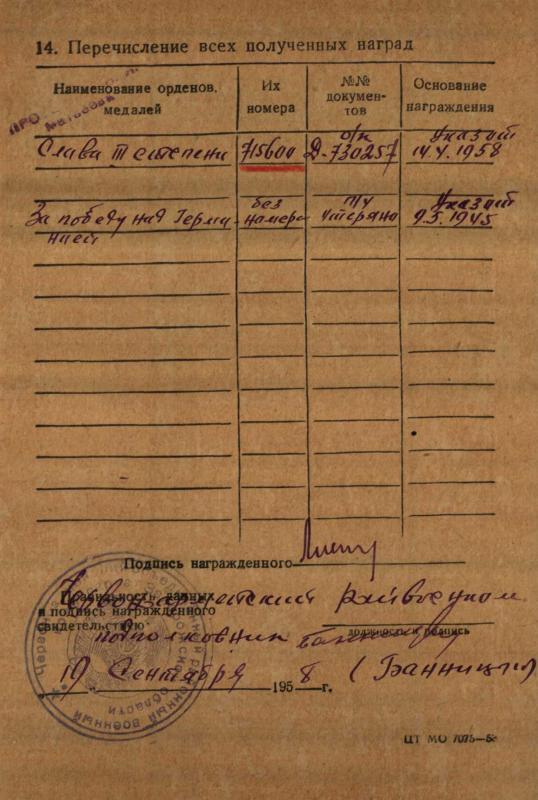 14. Перечисление всех полученных наград
Наименование орденов, медалей
Их номера
№№ документов
Основание награждения
Слава III степени
715600
о/к Д-730257
Указом 14.V.1958
За победу над Германией
без номера
п/у утеряно
Указом 9.5.1945
Подпись награжденного
Правильность данных
и подпись награжденного
свидетельствую
райвоенком
подполковник
должность и подпись
19 Сентября 1958 г. (Банницын)
ЦТ МО 7075—58